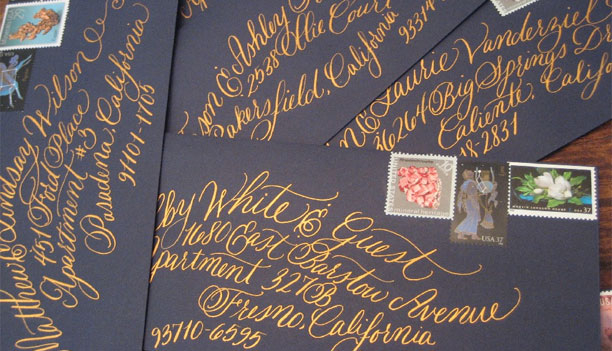 Matthew & Lindsay Wilson
451 Ford Place
Apartment #3
Pasadena, California
91101-1705
son & Ashley
2538 Court
akersfield, California
93314
n & Laurie Vanderziel
36264 Big Springs Dr
Caliente, Califo
18-2831
lby White & Guest
1680 East Barstow Avenue
partment 327B
Fresno, California
93710-6595
USA 37
37